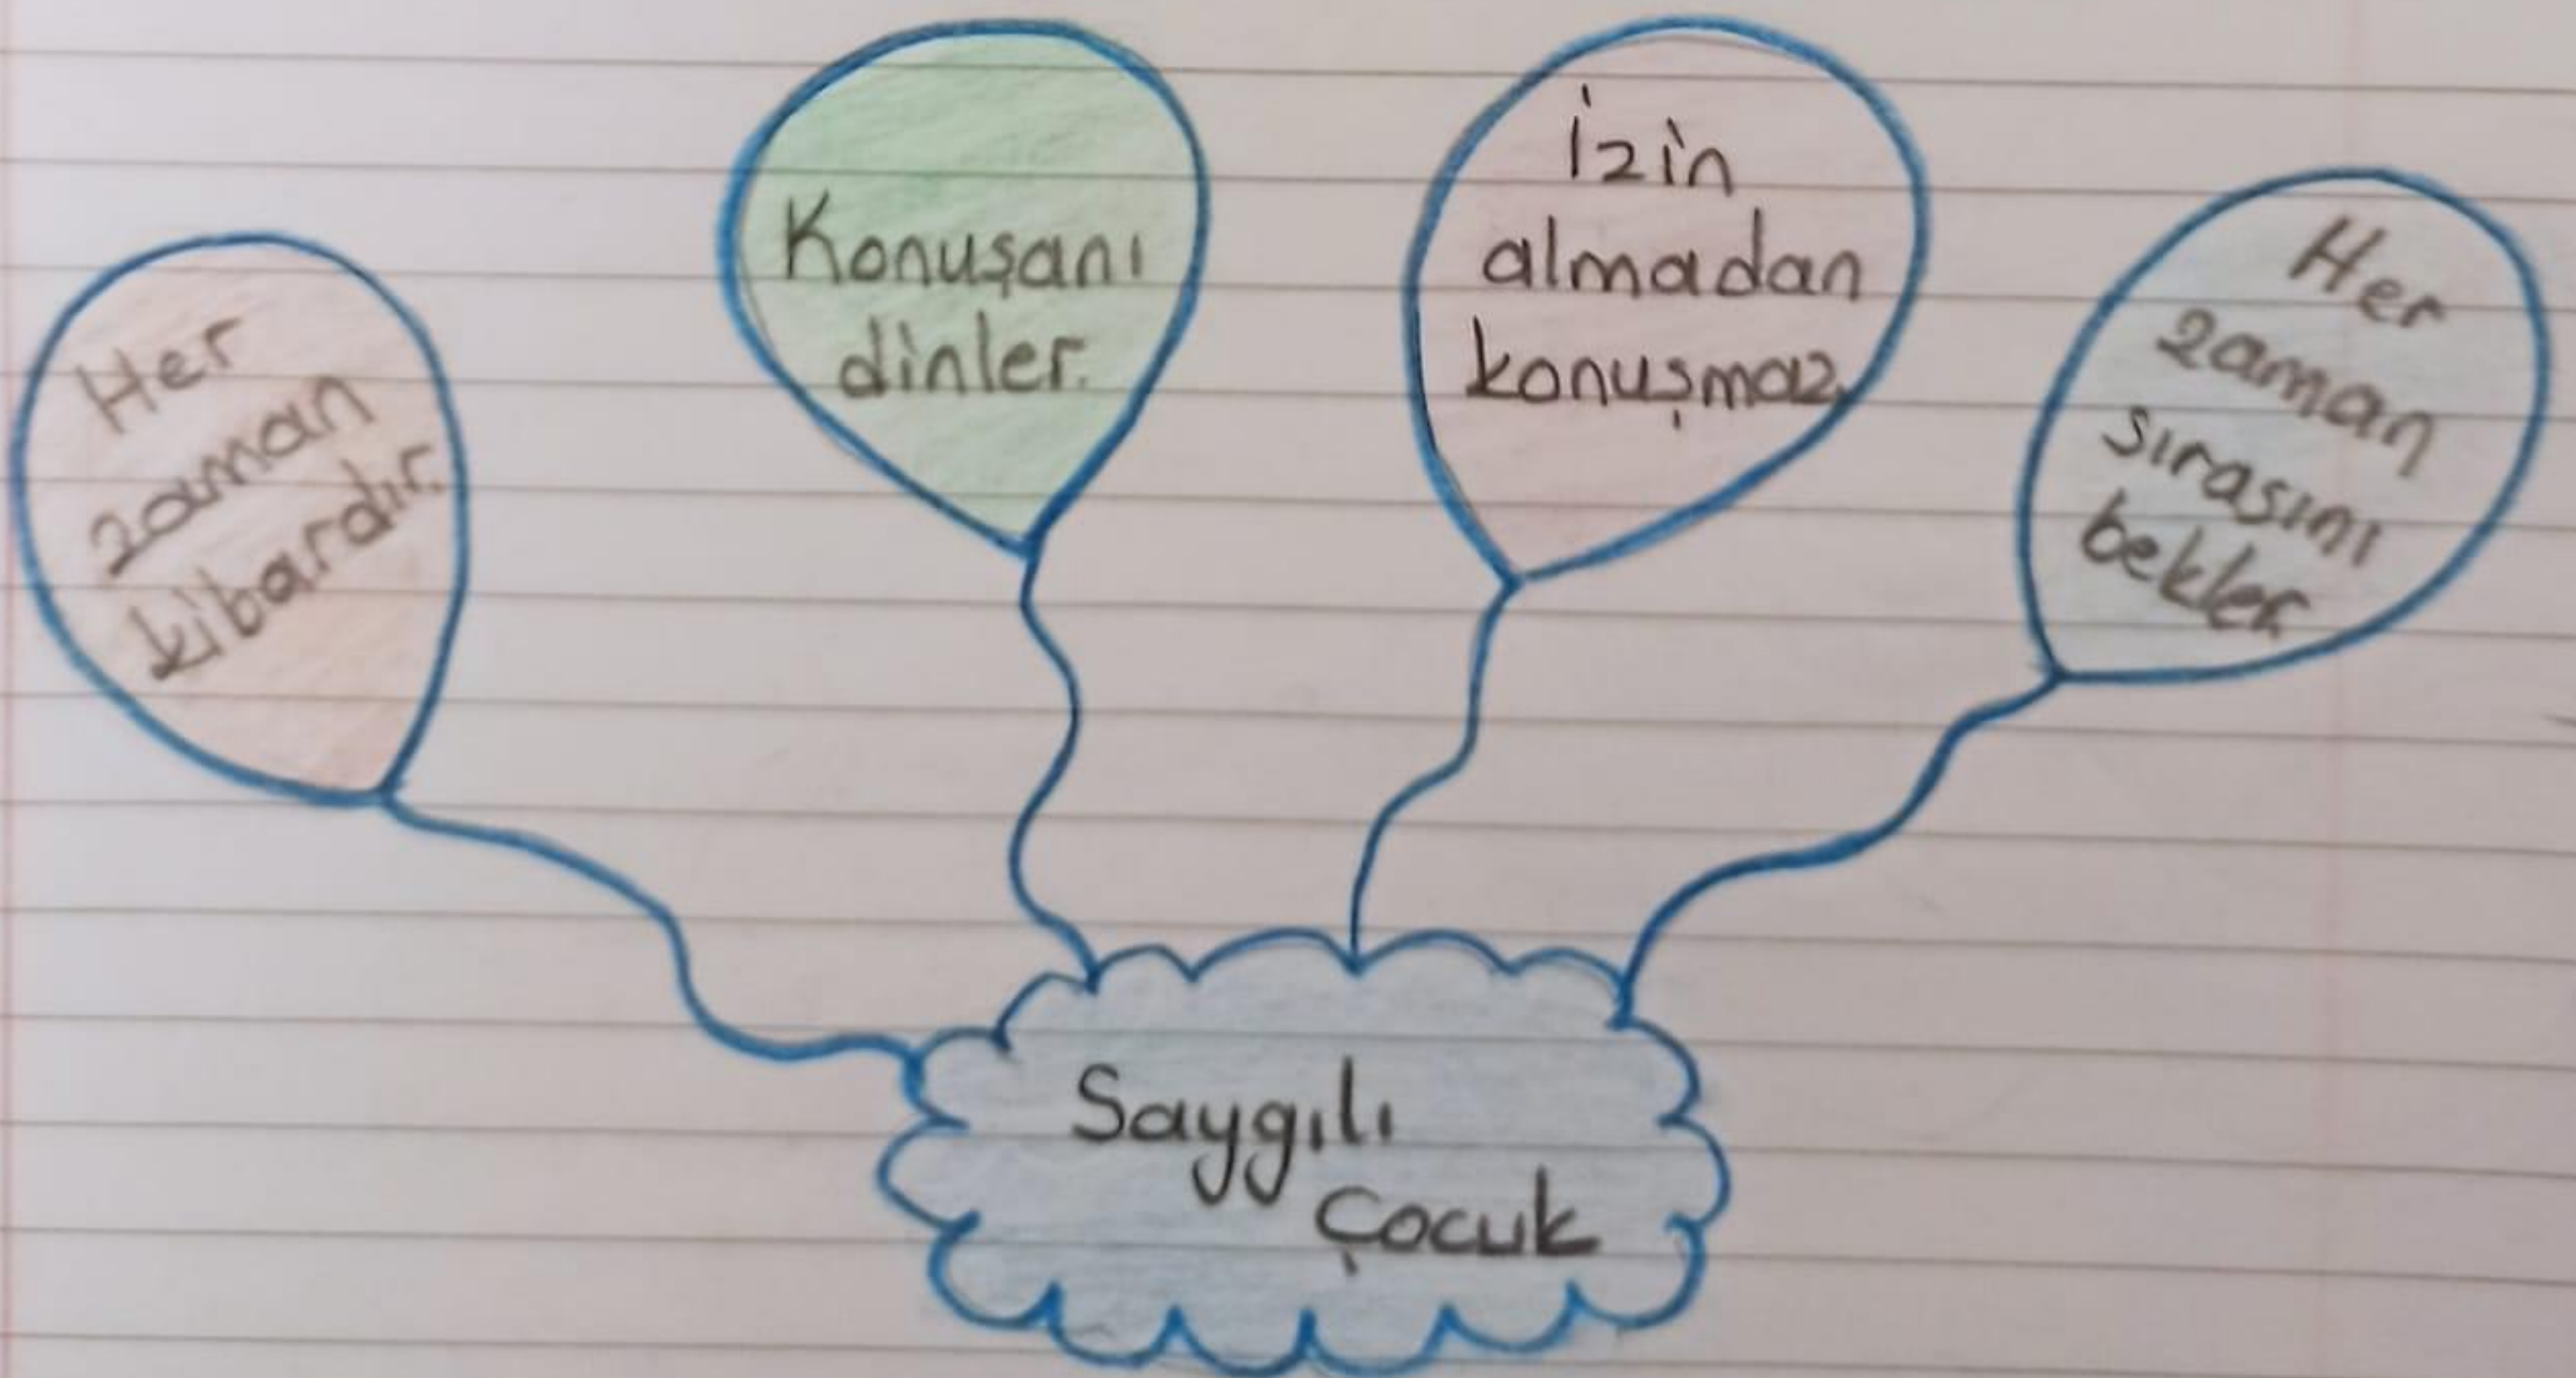 Her
zaman
kibardır.
Konuşanı
dinler.
İzin
almadan
konuşmaz.
Her
zaman
sırasını
bekler.
Saygılı
Çocuk